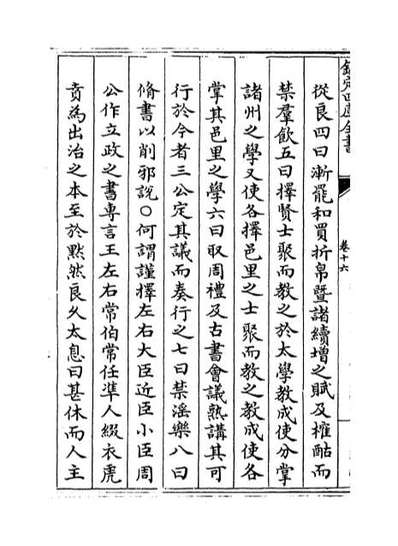 欽定四庫全書
卷十六
從良四曰漸罷和買折帛暨諸續增之賦及榷酤而
禁羣飲五曰擇賢士聚而教之於太學教成使分掌
諸州之學又使各擇邑里之士聚而教之教成使各
掌其邑里之學六曰取周禮及古書會議熟講其可
行於今者三公定其議而奏行之七曰禁淫樂八曰
脩書以削邪說○何謂謹擇左右大臣近臣小臣周
公作立政之書專言王左右常伯常任準人綴衣虎
賁為出治之本至於黙然良久太息曰甚休而人主